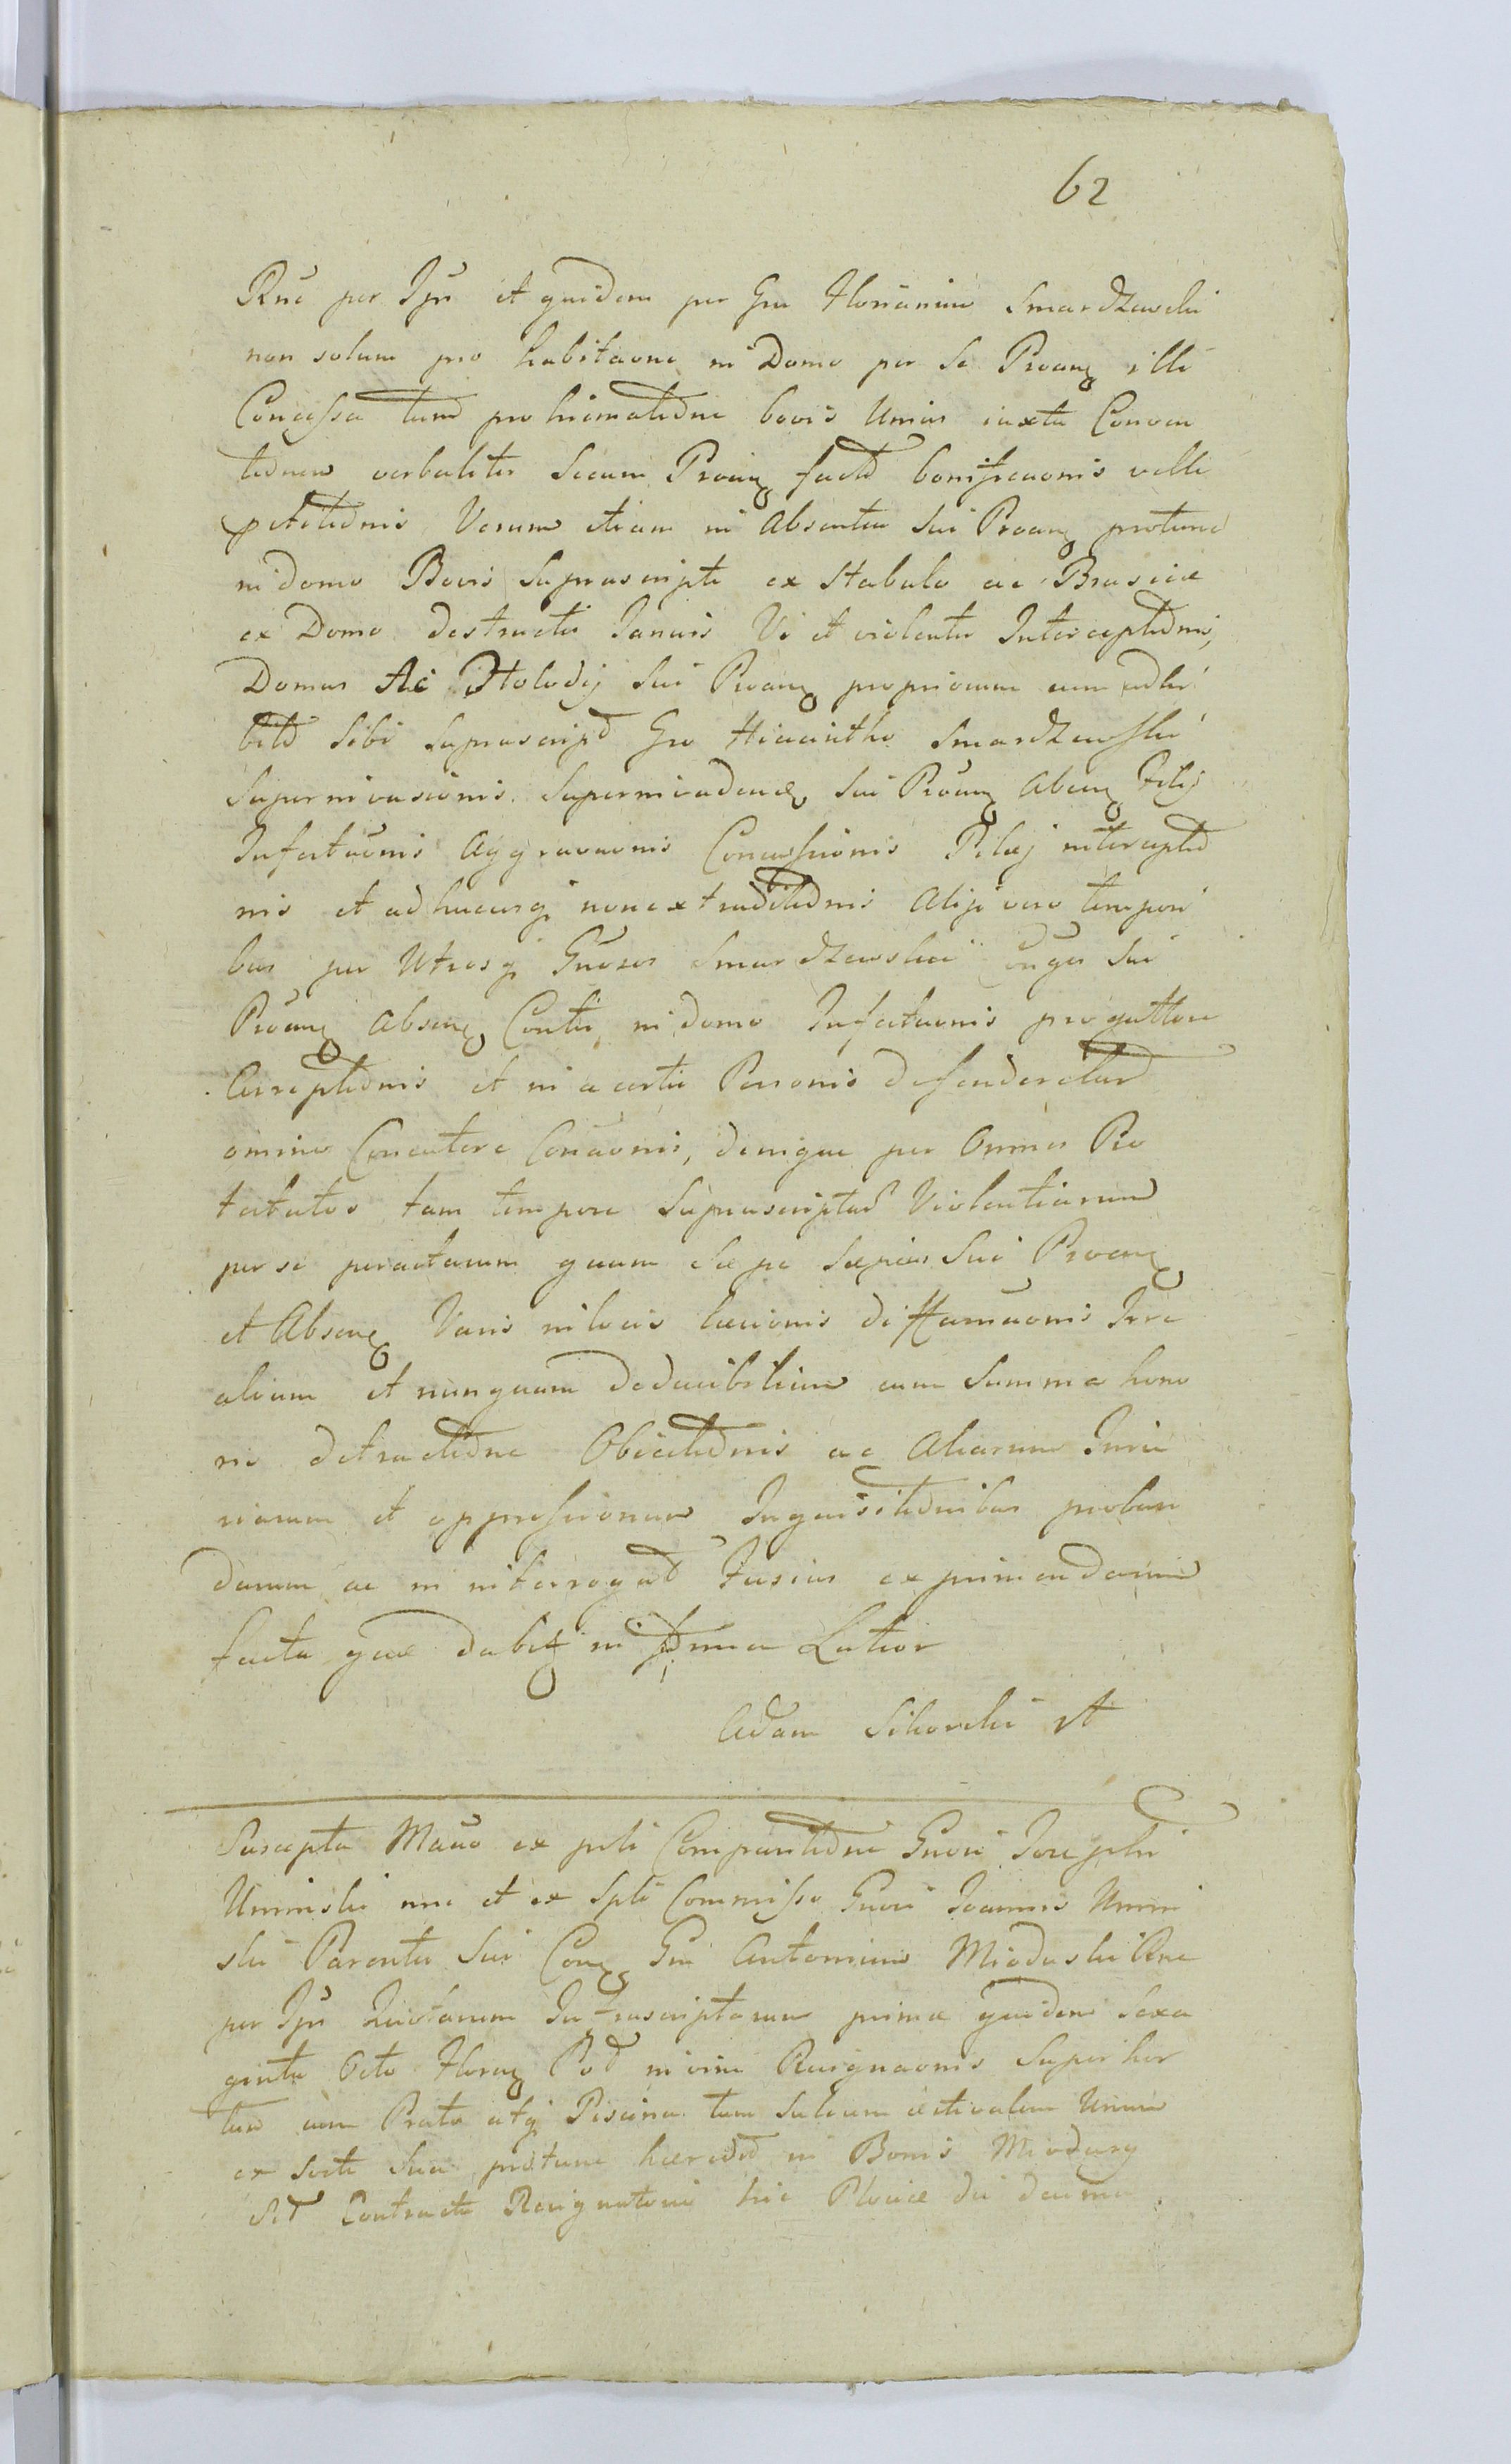 62
Rne per Ips et quidem per Gm Florianum Smardzewski
non solum pro habitaone in Domo per se Proan illi
Concessa tum pro hiematione bovis Unius iuxta Conven
tionem verbaliter secum Proan fact bonificaonis velle
petitionis Verum etiam in absentia sui Proan protunc
in domo Bovis suprascripti ex Stabulo ac Brasice
ex Domo destructis Januis Vi et violenter Interceptionis,
Domus Ac Stolodij sui Proan propriorum cum adhi
bito sibi suprascripto Gro Hiacintho Smardzewski
Superinvasionis Supermicadence sui Proan absen Filij
Infestaonis aggravaonis Concussionis Pilei interceptio
nis et adhucusq non extraditionis alijs vero tempori
bus per Utrosq Gnosos Smardzewskie sui
Proan absen Contis in domo Infestaonis pro guttere
arreptionis et ni a certis Personis defenderetur
omnino Conaonis, denique per Omnes Pro
testatos tam tempore suprascriptar Violentiarum
per se peractarum quam Sæpe Sæpius sui Proan
et Absen Variis in locis læcionis diffamaonis Irre
alium et nunquam deducibilium cum summa hono
ris detractione Obiectionis ac Aliarum Iniu
riarum et oppressionum Inquisitionibus proban
darum ac in interrogat fusius exprimendarum
facta quæ dabit in forma Latior
Adam Sikorski
Suscepta Mano ex psti Comparitione Gnosi Josephi
Uminski mi et ex spli Commisso Gnosi Joannis Umin
ski Parentis sui Con Gm Antonium Mioduski Rne
per Ips Quotarum Infrascriptarum prima quidem Sexa
ginta Octo Floren Pol in vim Resignaonis super hor
tum cum Prato atq Piscina tum Sulcum æstivalem Unum
ex sorte sua protunc hæredit in Bonis Miodusy
sit Contractu Resignatorio hic Plocie die decima